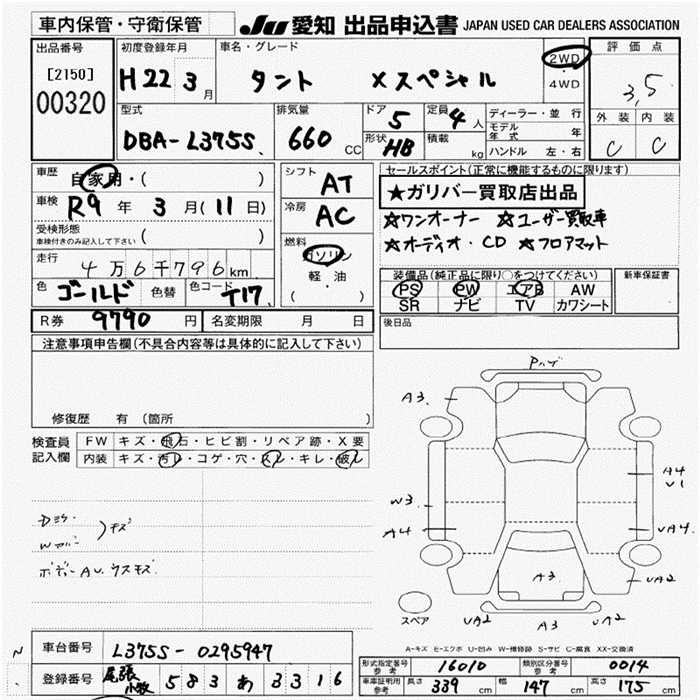 車内保管・守衛保管
JU 愛知 出品申込書 JAPAN USED CAR DEALERS ASSOCIATION
出品番号
[2150]
00320
初度登録年月
H22 3 月
車名・グレード
タント Xスペシャル
2WD
・
4WD
評価点
3,5
外装 内装
C C
型式
DBA-L375S
排気量
660 CC
ドア 5
形状 HB
定員 4 人
積載 kg
ディーラー・並行
モデル年式 年
ハンドル 左・右
車歴 自家用・( )
車検 R9 年 3 月(11日)
受検形態
車検付きのみ記入して下さい ( )
走行 4万6千796km
色 ゴールド 色替 色コード T17
シフト AT
冷房 AC
燃料
ガソリン
軽・油
( )
セールスポイント(正常に機能するものに限ります)
★ガリバー買取店出品
☆ワンオーナー ☆ユーザー買取車
☆オーディオ・CD ☆フロアマット
装備品(純正品に限り○をつけてください)
PS PW エアB AW
SR ナビ TV カワシート
新車保証書
R券 9790 円 名変期限 月 日
後日品
注意事項申告欄(不具合内容等は具体的に記入して下さい)
修復歴 有(箇所 )
検査員
記入欄
FW キズ・飛石・ヒビ割・リペア跡・X要
内装 キズ・汚レ・コゲ・穴・スレ・キレ・破レ
Dミラ・
Wカバー
)キズ
ボデーAU.ウスキズ
Pハゲ
A3.
A4
V1
W3
A4
UA4.
A3
UA2
スペア
UA2
A3
UA2
A-キズ E-エクボ U-凹み W-補修跡 S-サビ C-腐食 XX-交換済
車台番号 L375S-0295947
登録番号 尾張小牧 583 あ 3316
形式指定番号 参考 16010 類別区分番号 参考 0014
車庫証明用 参考 長さ 339 cm 幅 147 cm 高さ 175 cm